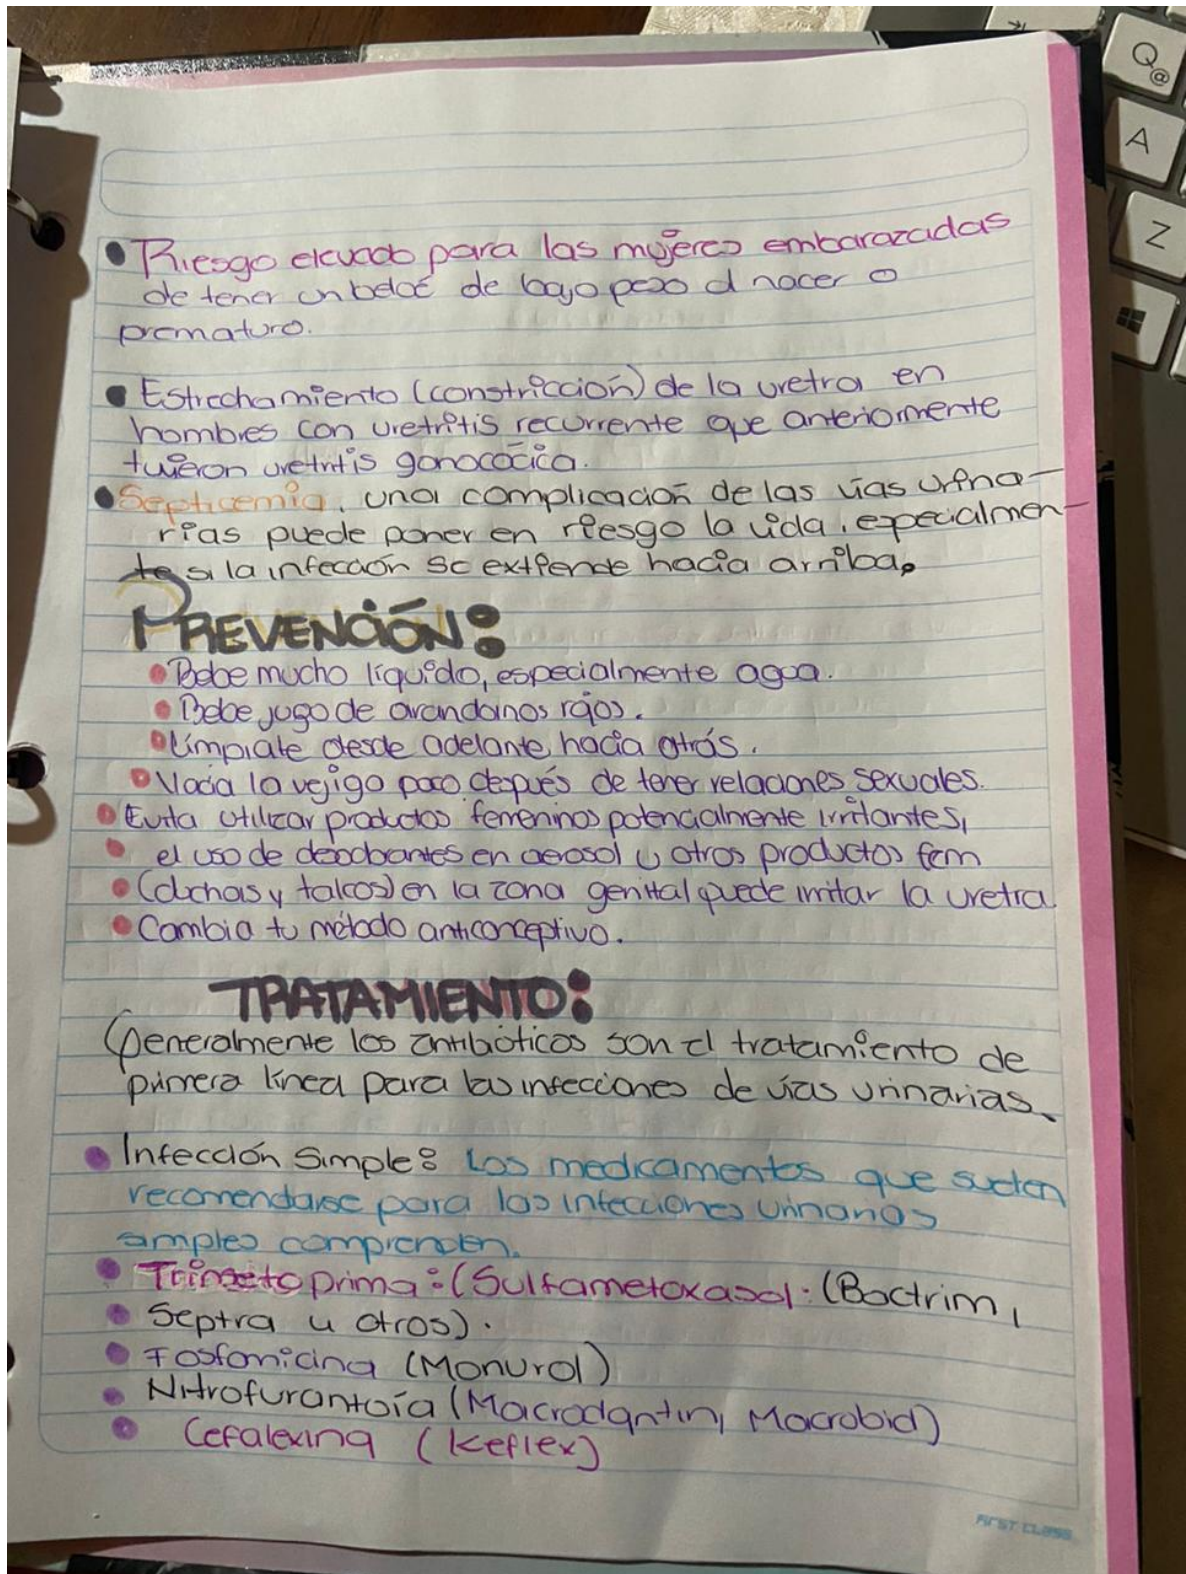 • Riesgo elevado para las mujeres embarazadas
de tener un bebé de bajo peso al nacer o
prematuro.
• Estrechamiento (constricción) de la uretra en
hombres con uretritis recurrente que anteriormente
tuvieron uretritis gonocócica.
• Septicemia, una complicación de las vías urina-
rias puede poner en riesgo la vida, especialmen-
te si la infección se extiende hacia arriba.
PREVENCIÓN:
• Bebe mucho líquido, especialmente agua.
• Bebe jugo de arandanos rojos.
• Límpiate desde adelante hacia atrás.
• Vacía la vejiga poco después de tener relaciones sexuales.
• Evita utilizar productos femeninos potencialmente irritantes,
• el uso de desodorantes en aerosol u otros productos fem
• (duchas y talcos) en la zona genital puede irritar la uretra
• Cambia tu método anticonceptivo.
TRATAMIENTO:
Generalmente los antibióticos son el tratamiento de
primera línea para las infecciones de vías urinarias.
• Infección Simple: Los medicamentos que suelen
recomendarse para las infecciones urinarias
simples comprenden.
• Trimetoprima: (Sulfametoxasol: (Bactrim,
• Septra u otros).
• Fosfomicina (Monurol)
• Nitrofurantoía (Macrodantin, Macrobid)
• Cefalexina (Keflex)
FIRST CLASS
Q
@
A
Z